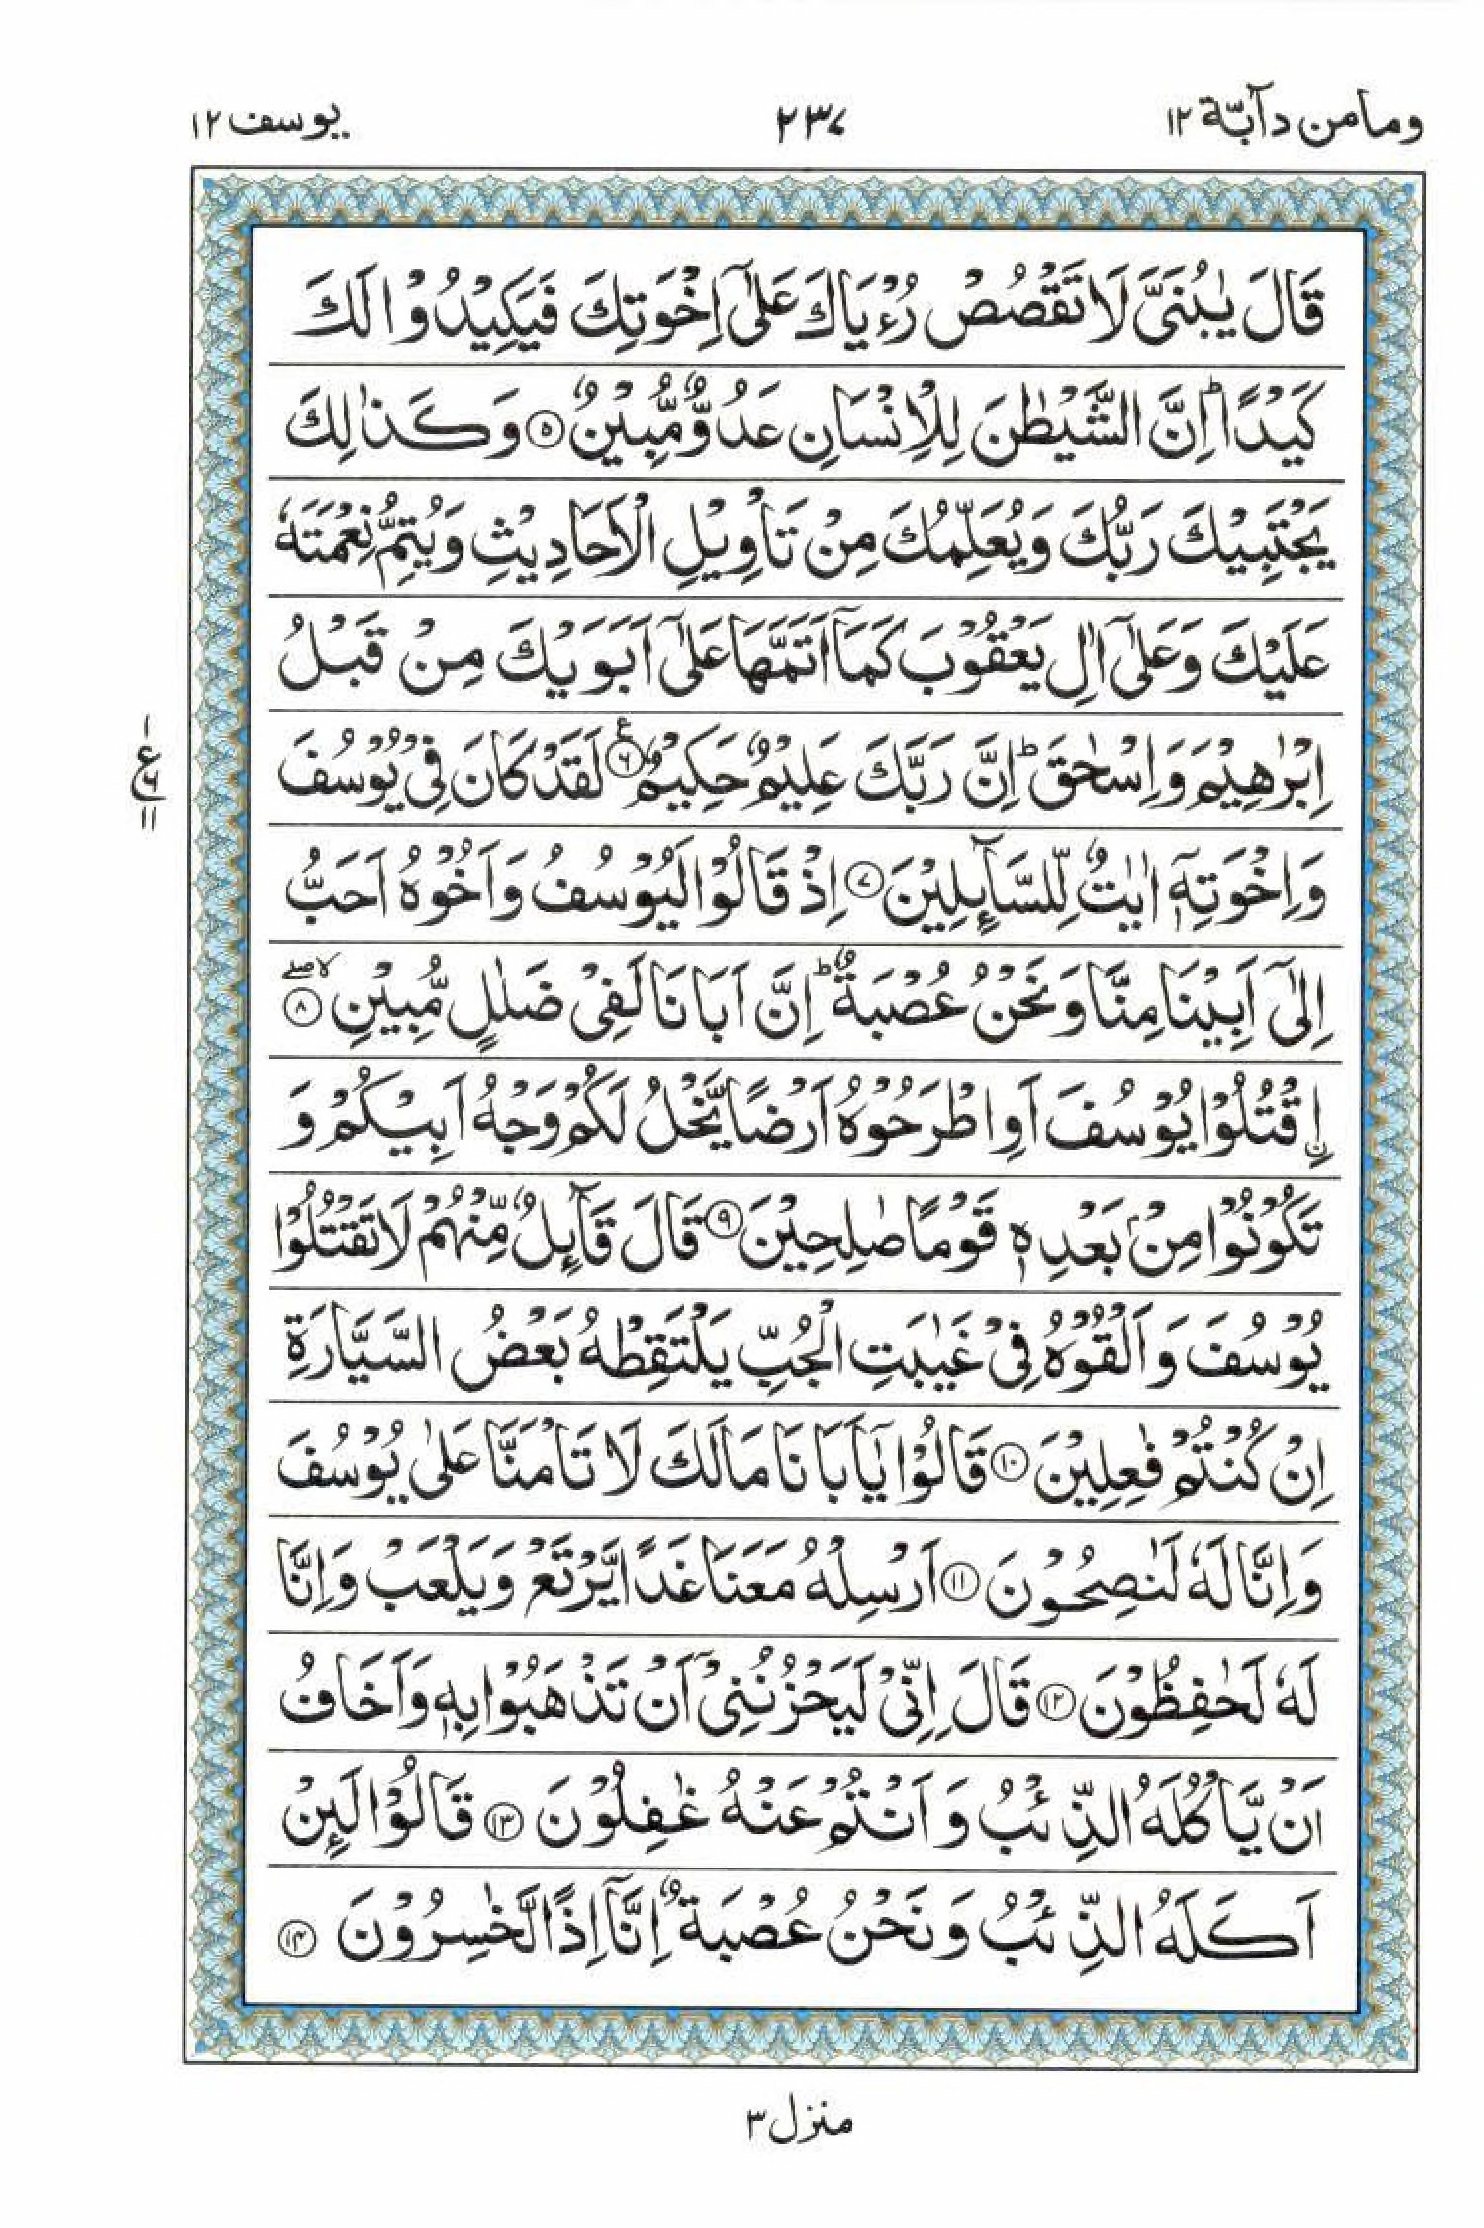 وما من دآبّة ١٢
٢٣٧
يوسف ١٢
قَالَ يٰبُنَيَّ لَا تَقْصُصْ رُءْيَاكَ عَلٰٓى اِخْوَتِكَ فَيَكِيْدُوْا لَكَ
كَيْدًا ؕ اِنَّ الشَّيْطٰنَ لِلْاِنْسَانِ عَدُوٌّ مُّبِيْنٌ ۝٥ وَكَذٰلِكَ
يَجْتَبِيْكَ رَبُّكَ وَيُعَلِّمُكَ مِنْ تَاْوِيْلِ الْاَحَادِيْثِ وَيُتِمُّ نِعْمَتَهٗ
عَلَيْكَ وَعَلٰٓى اٰلِ يَعْقُوْبَ كَمَاۤ اَتَمَّهَا عَلٰٓى اَبَوَيْكَ مِنْ قَبْلُ
اِبْرٰهِيْمَ وَاِسْحٰقَ ؕ اِنَّ رَبَّكَ عَلِيْمٌ حَكِيْمٌ ۝٦ ع لَقَدْ كَانَ فِيْ يُوْسُفَ
١
ع ٦
١١
وَاِخْوَتِهٖۤ اٰيٰتٌ لِّلسَّآئِلِيْنَ ۝٧ اِذْ قَالُوْا لَيُوْسُفُ وَاَخُوْهُ اَحَبُّ
اِلٰٓى اَبِيْنَا مِنَّا وَنَحْنُ عُصْبَةٌ ؕ اِنَّ اَبَانَا لَفِيْ ضَلٰلٍ مُّبِيْنِ ۝٨ ۙ صلے
ۨ اقْتُلُوْا يُوْسُفَ اَوِ اطْرَحُوْهُ اَرْضًا يَّخْلُ لَكُمْ وَجْهُ اَبِيْكُمْ وَ
تَكُوْنُوْا مِنْۢ بَعْدِهٖ قَوْمًا صٰلِحِيْنَ ۝٩ قَالَ قَآئِلٌ مِّنْهُمْ لَا تَقْتُلُوْا
يُوْسُفَ وَاَلْقُوْهُ فِيْ غَيٰبَتِ الْجُبِّ يَلْتَقِطْهُ بَعْضُ السَّيَّارَةِ
اِنْ كُنْتُمْ فٰعِلِيْنَ ۝١٠ قَالُوْا يٰۤاَبَانَا مَا لَكَ لَا تَاْمَنَّا عَلٰى يُوْسُفَ
وَاِنَّا لَهٗ لَنٰصِحُوْنَ ۝١١ اَرْسِلْهُ مَعَنَا غَدًا يَّرْتَعْ وَيَلْعَبْ وَاِنَّا
لَهٗ لَحٰفِظُوْنَ ۝١٢ قَالَ اِنِّيْ لَيَحْزُنُنِيْۤ اَنْ تَذْهَبُوْا بِهٖ وَاَخَافُ
اَنْ يَّاْكُلَهُ الذِّئْبُ وَاَنْتُمْ عَنْهُ غٰفِلُوْنَ ۝١٣ قَالُوْا لَئِنْ
اَكَلَهُ الذِّئْبُ وَنَحْنُ عُصْبَةٌ اِنَّاۤ اِذًا لَّخٰسِرُوْنَ ۝١٤
منزل ٣